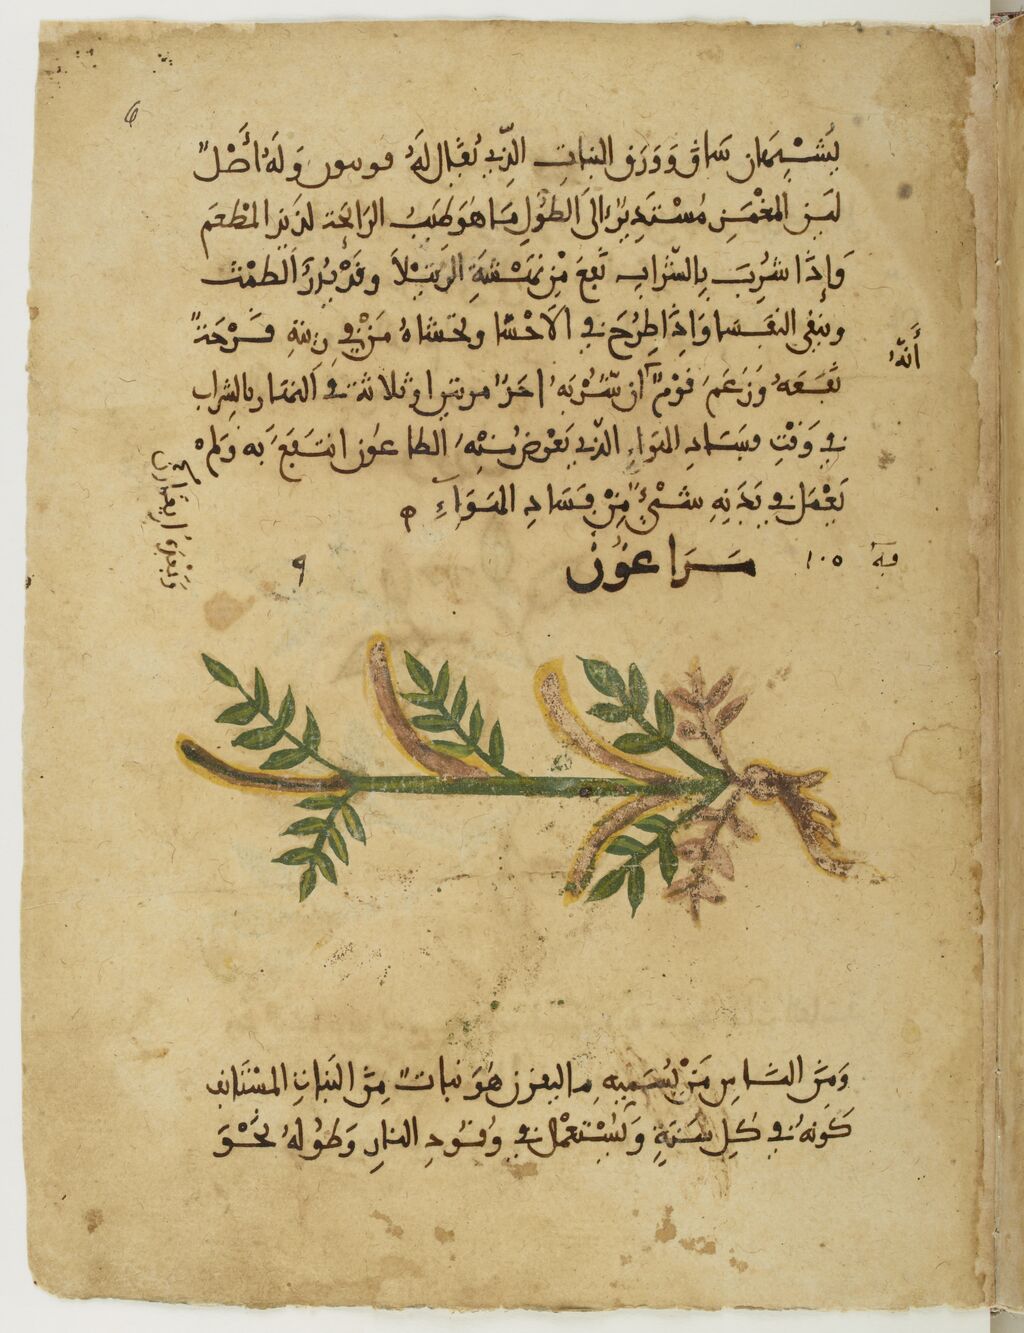 يُشْبِهان ساق وَوَرَق النباتِ الذّي يُقَال لَهُ قونيون وَلَهُ أَصْل
لَيِن المَغْمَزِ مُسْتَدِير إلى الطُولِ مَا هُوَ طَيبُ الرَايحَة لذيذ المَطْعَم
وَإِذَا شُرِبَ بِالشَّرابِ نَفع مِنْ نهْشَةِ الرتيْلَا وقَدْ يُدِرّ الطمْث
وينقى النفسا وَاذَا طُرِحَ في الاَحْسَا وتحَسَاهُ مَنْ في رئتهِ قَرْحَة
نَفَعَهُ وَزَعَمَ قَوْمٌ أن شُرْبَهُ احَدًا مرتين او ثلاثة في النهَار بالشِراب
في وَقْتِ فسَادِ الهَوَاءِ الذّي يَعْرضُ مِنْهُ الطاعُون انتفَعَ بَه وَلمْ
يَعْمَل في بَدَنِهِ شىْءٌ مِنْ فَسَادِ الهَوَآءِ
أَنّهُ
قه ١٠٥ سَرَاعُوْن ٩
6
وَمنَ النَاسِ مَنْ يُسَمِيهِ هُوَ نباتٌ مِنَ النَبَاتِ المُسْتَانِف
كَونهُ في كُلِ سَنَةٍ وَيُسْتَعْمَل في وُقُودِ النارِ وَطُولُهُ نَحْوَ